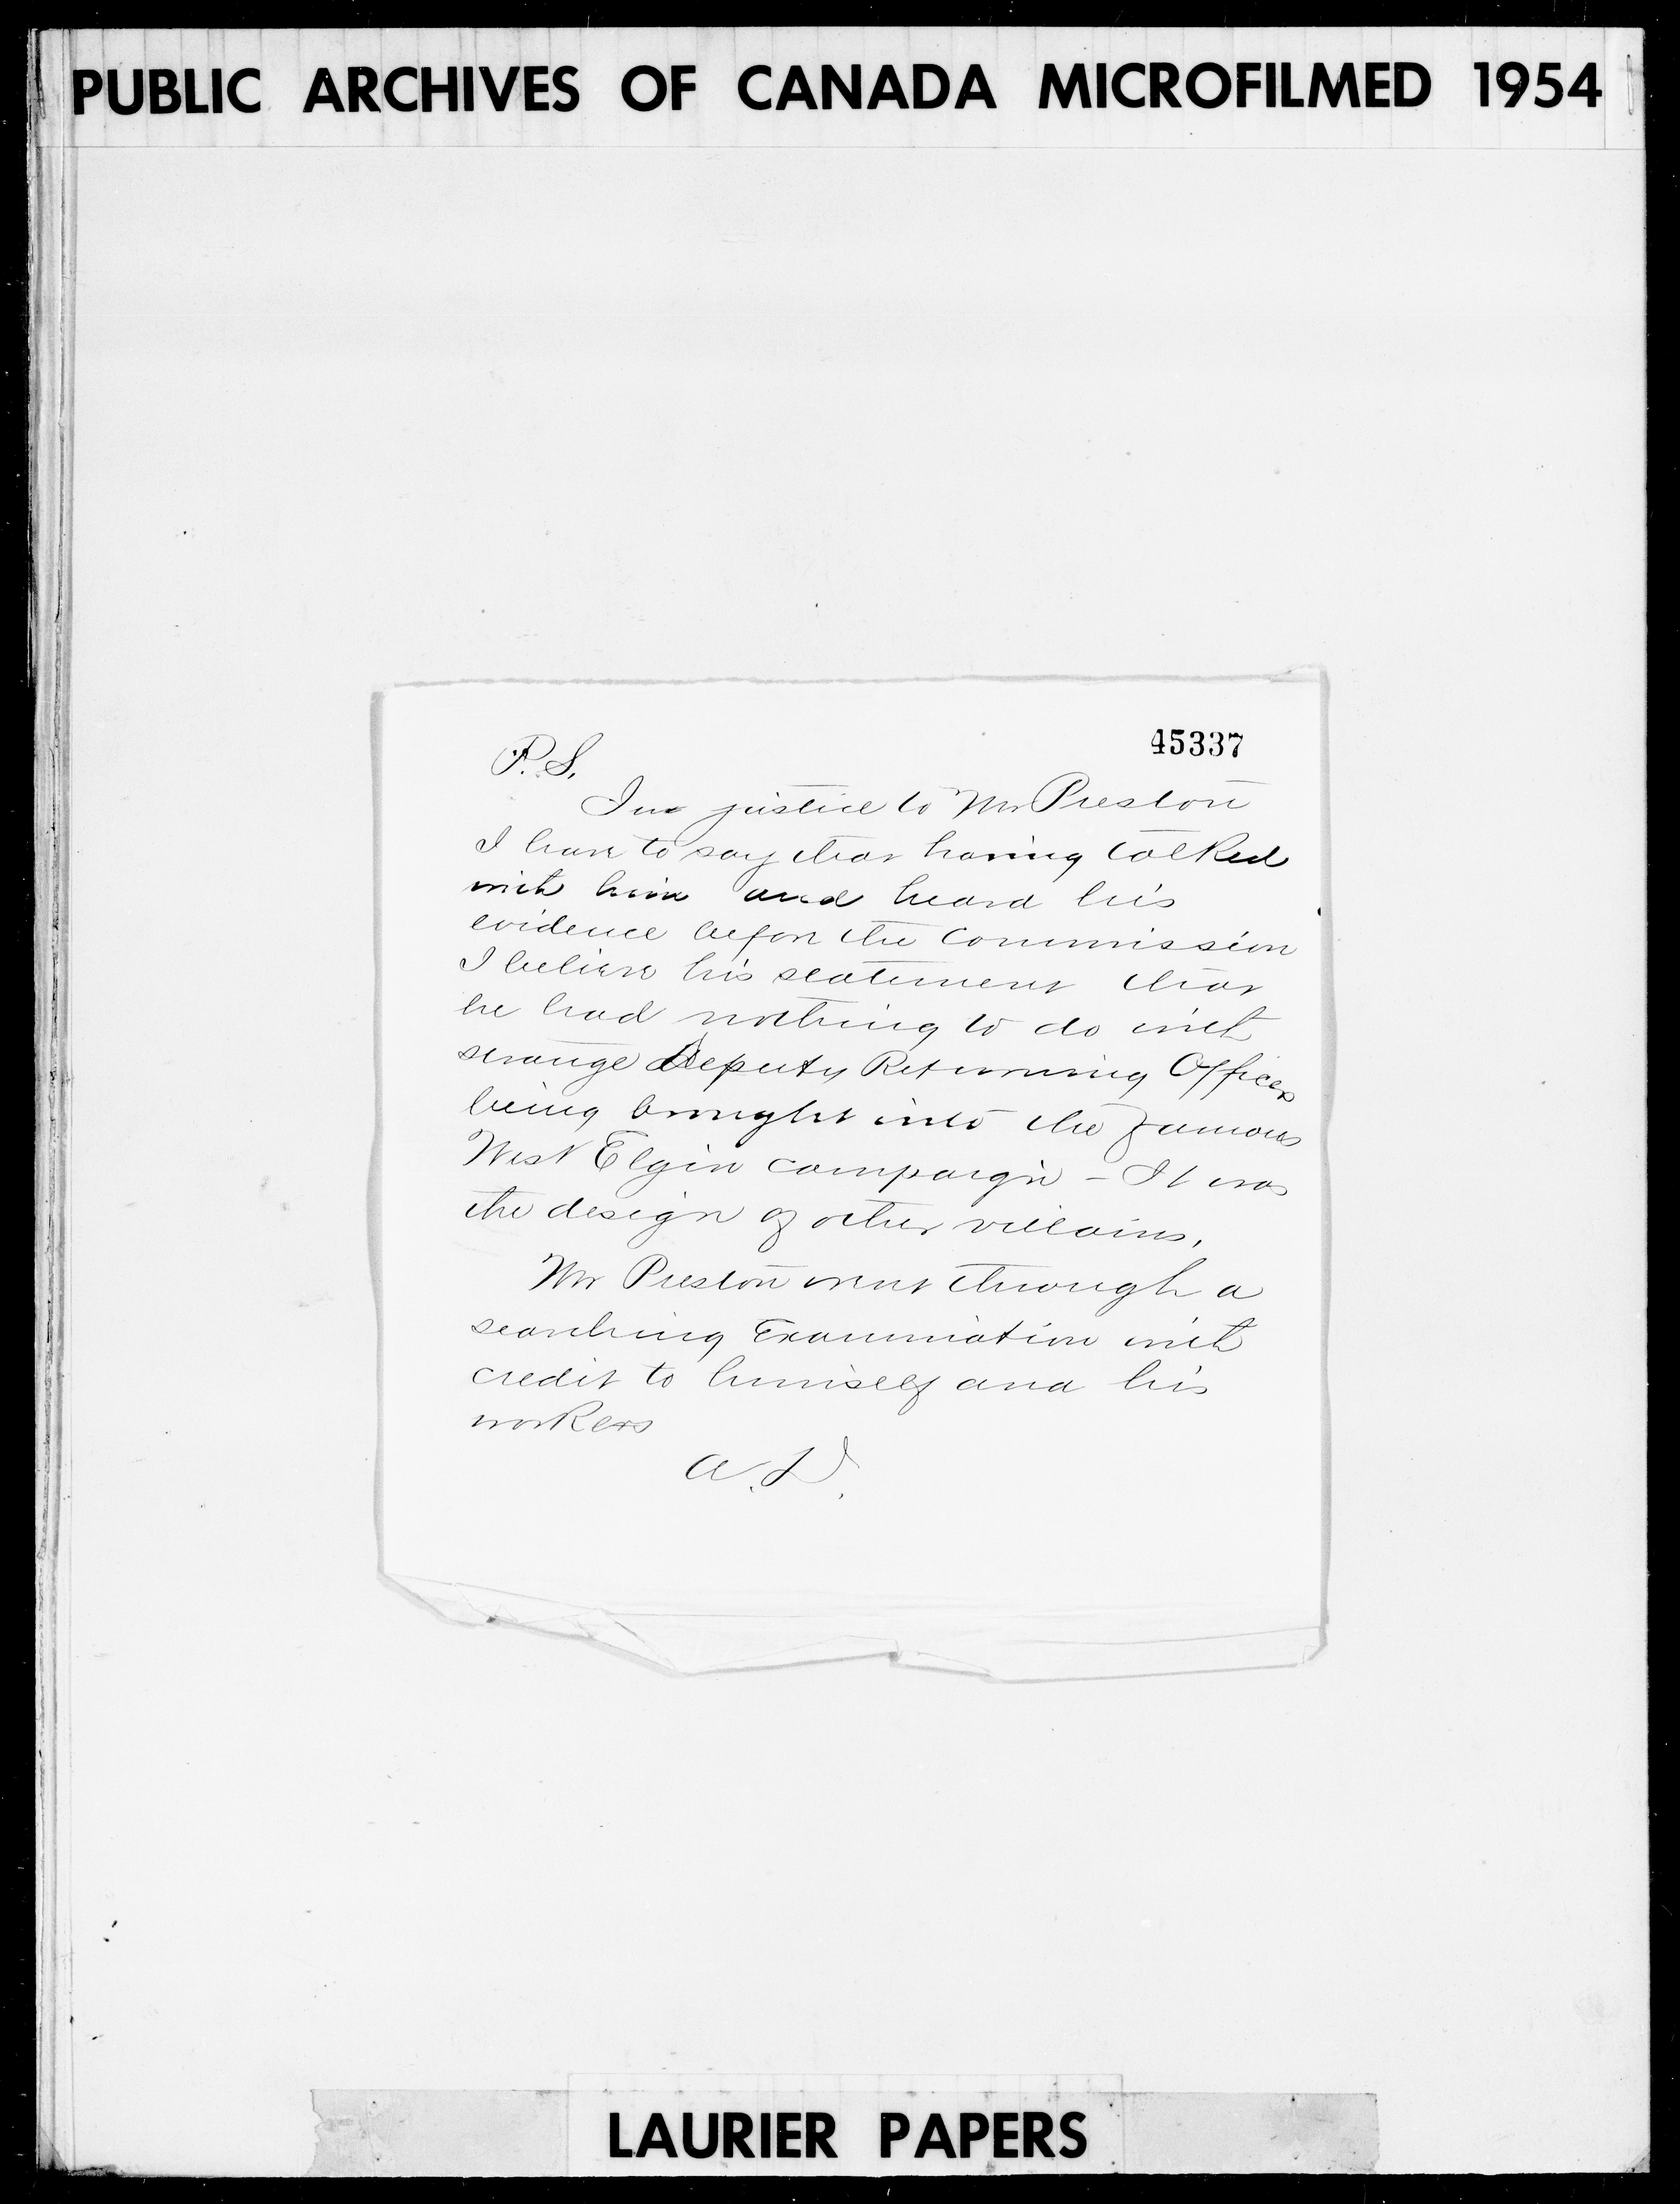 PUBLIC ARCHIVES OF CANADA MICROFILMED 1954
45337
P.S.
In justice to Mr Preston
I have to say that having talked
with him and heard his
evidence before the Commission
I believe his statement that
he had nothing to do with
strange Deputy Returning Officers
being brought into the famous
West Elgin campaign - It was
the design of other villains.
Mr Preston went through a
searching Examination with
credit to himself and his
workers
A.D.
LAURIER PAPERS